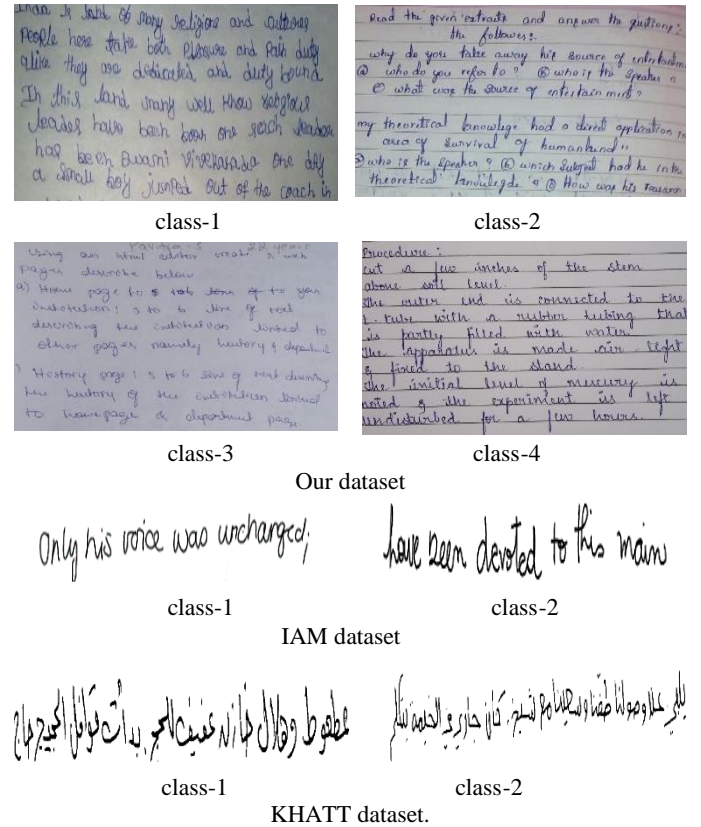 India is land of many religions and cultures
people here take both pleasure and path duty
alike they are dedicated and duty bound
In this land many well know religious
leaders have been born one such leader
has been swami vivekananda one day
a small boy jumped out of the coach in
class-1
Read the given extracts and answer the questions:
the follower:-
why do you take away his source of entertainm
ⓐ who do you refer to? ⓑ who is the speaker?
ⓒ what was the source of entertainment?
my theoretical knowlege had a direct application in
area of survival of humankind"
who is the speaker? ⓑ which subject had he in the
theoretical ⓒ How was his
class-2
22 years
Using an html editor create a web
pages describe below
a) Home page
institution: 5 to 6 line of text
describing the institution linked to
other pages namely history &
) History page: 5 to 6 line of text
the history of the institution linked
to homepage & department page
class-3
Procedure:
cut a few inches of the stem
above soil level.
The outer end is connected to the
t. tube with a rubber tubing that
is partly filled with water.
The apparatus is made air tight
& fixed to the stand.
The initial level of mercury is
noted & the experiment is left
undisturbed for a few hours.
class-4
Our dataset
Only his voice was unchanged;
class-1
have been devoted to this main
class-2
IAM dataset
بدأت قوافل الحجيج
class-1
كان جاري في الخيمة
class-2
KHATT dataset.